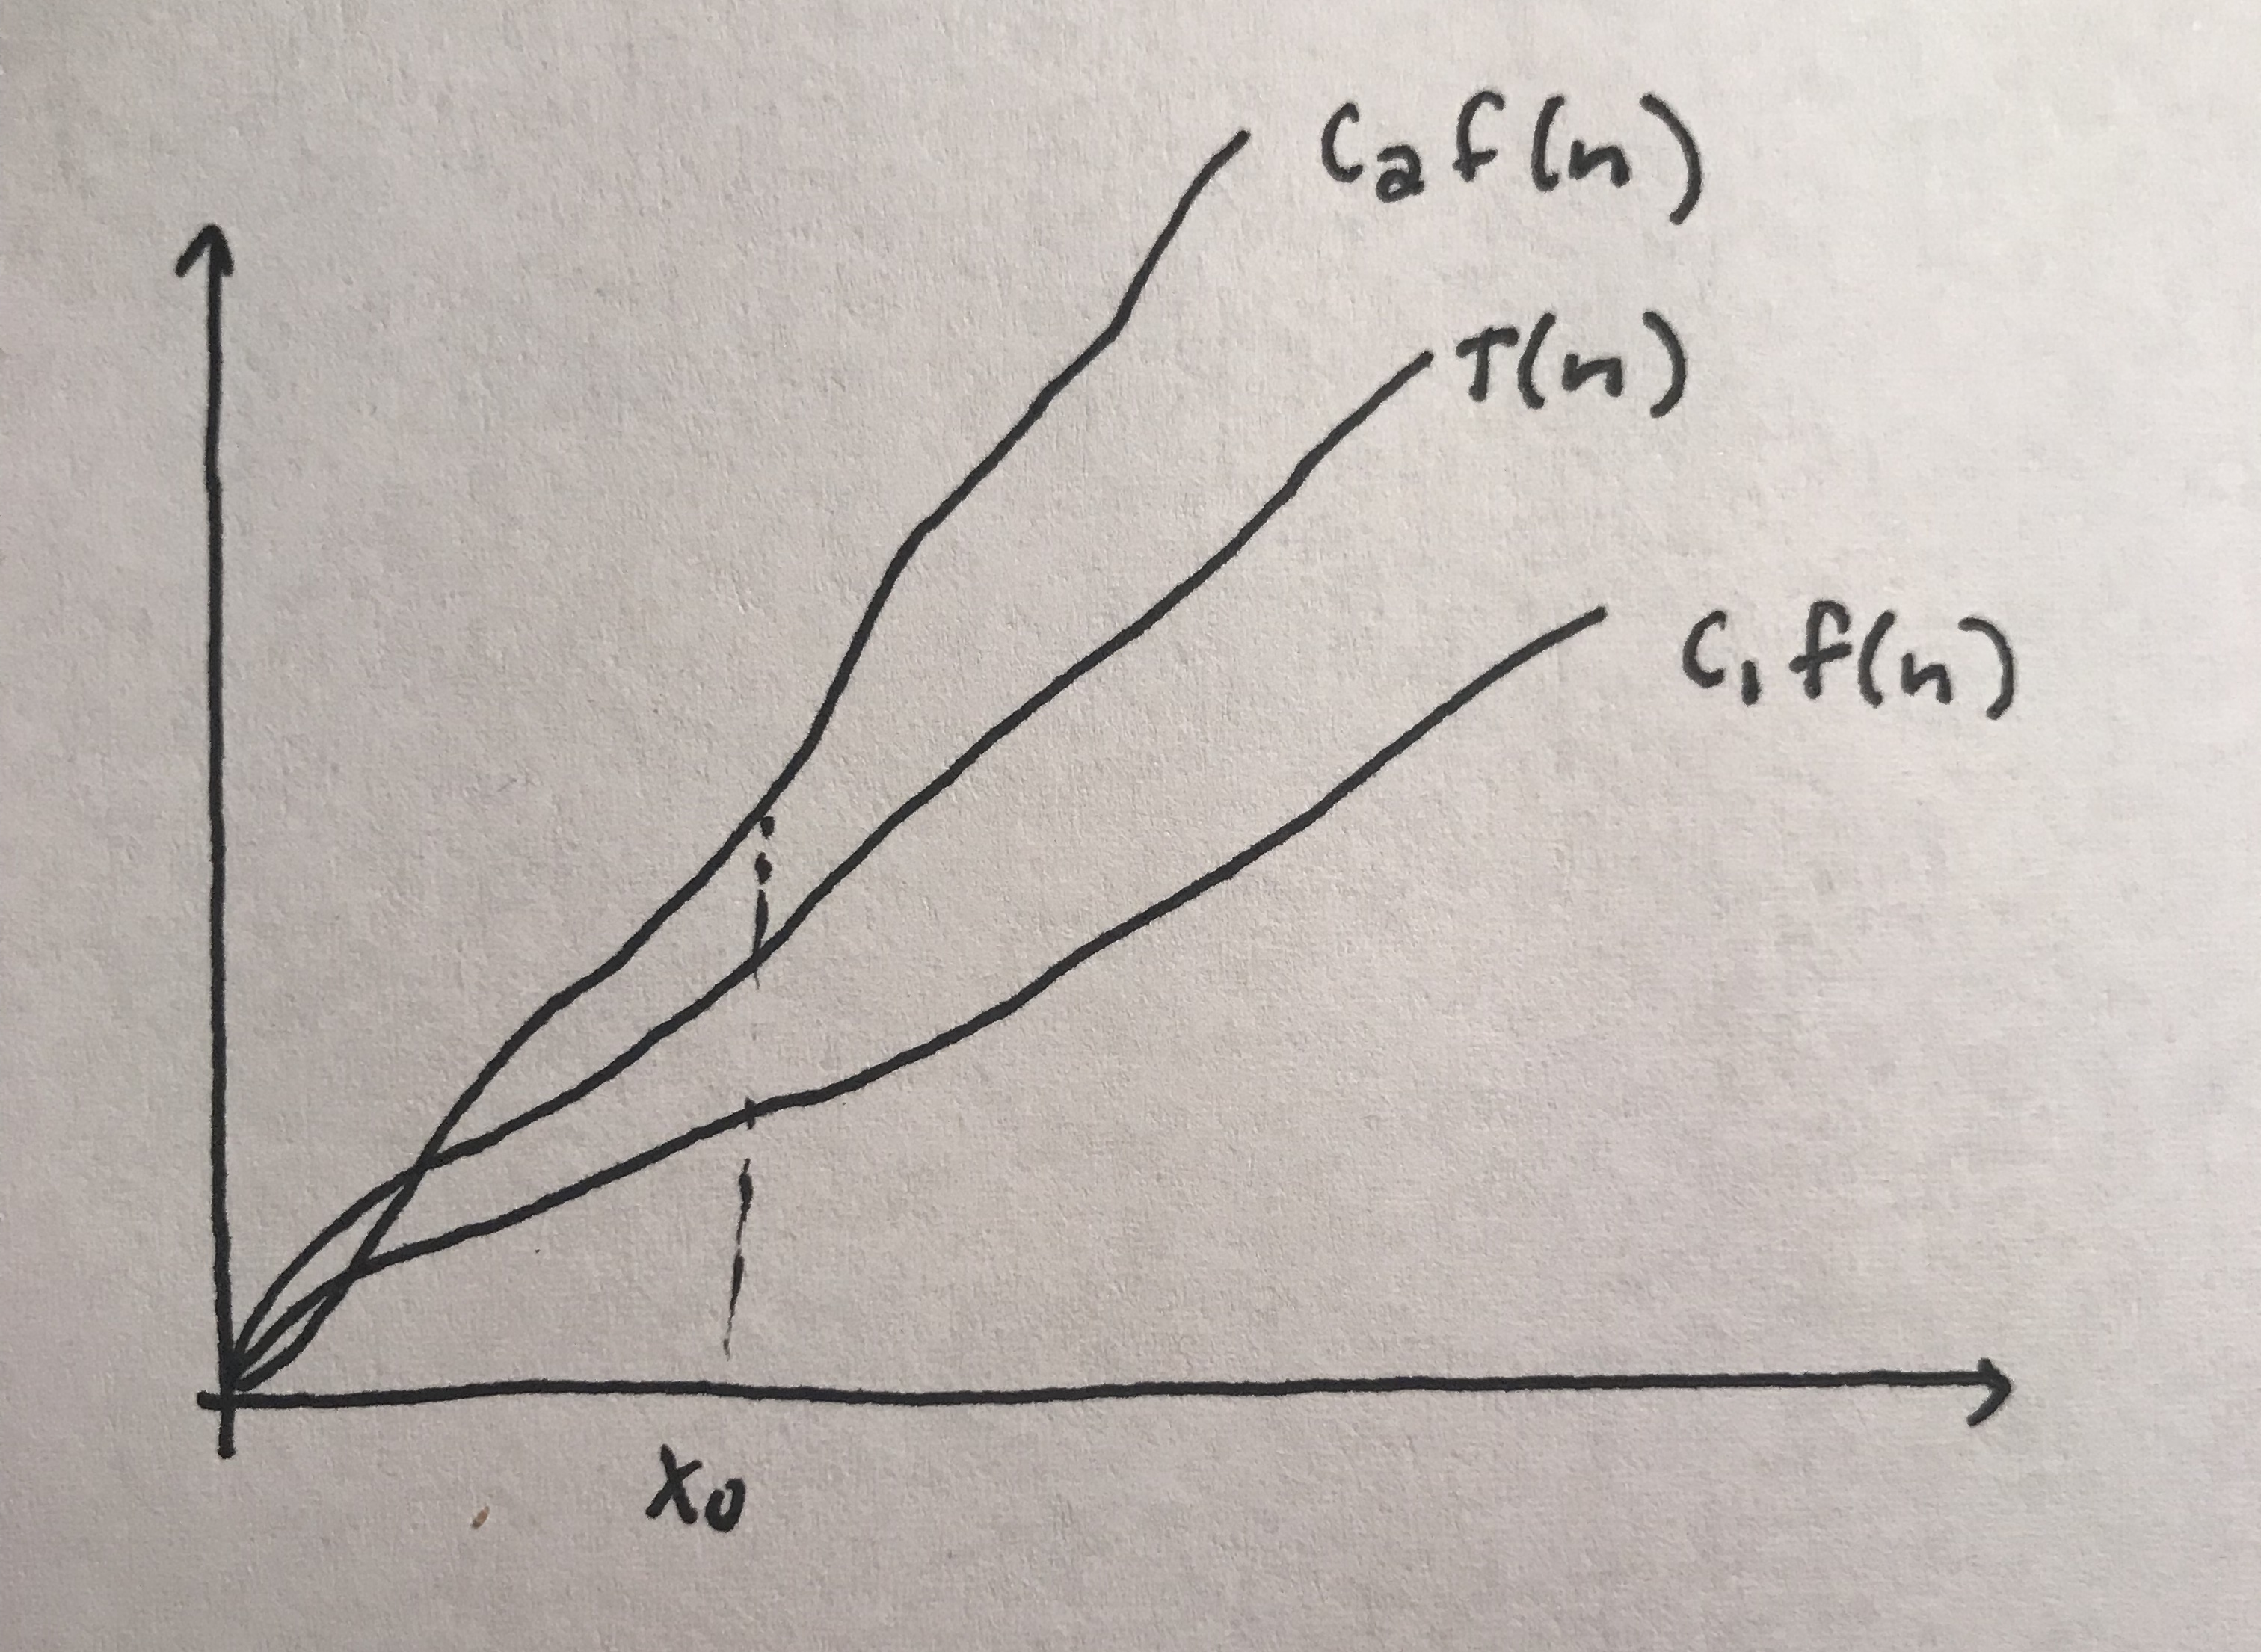 C₂f(n)
T(n)
C₁f(n)
x₀